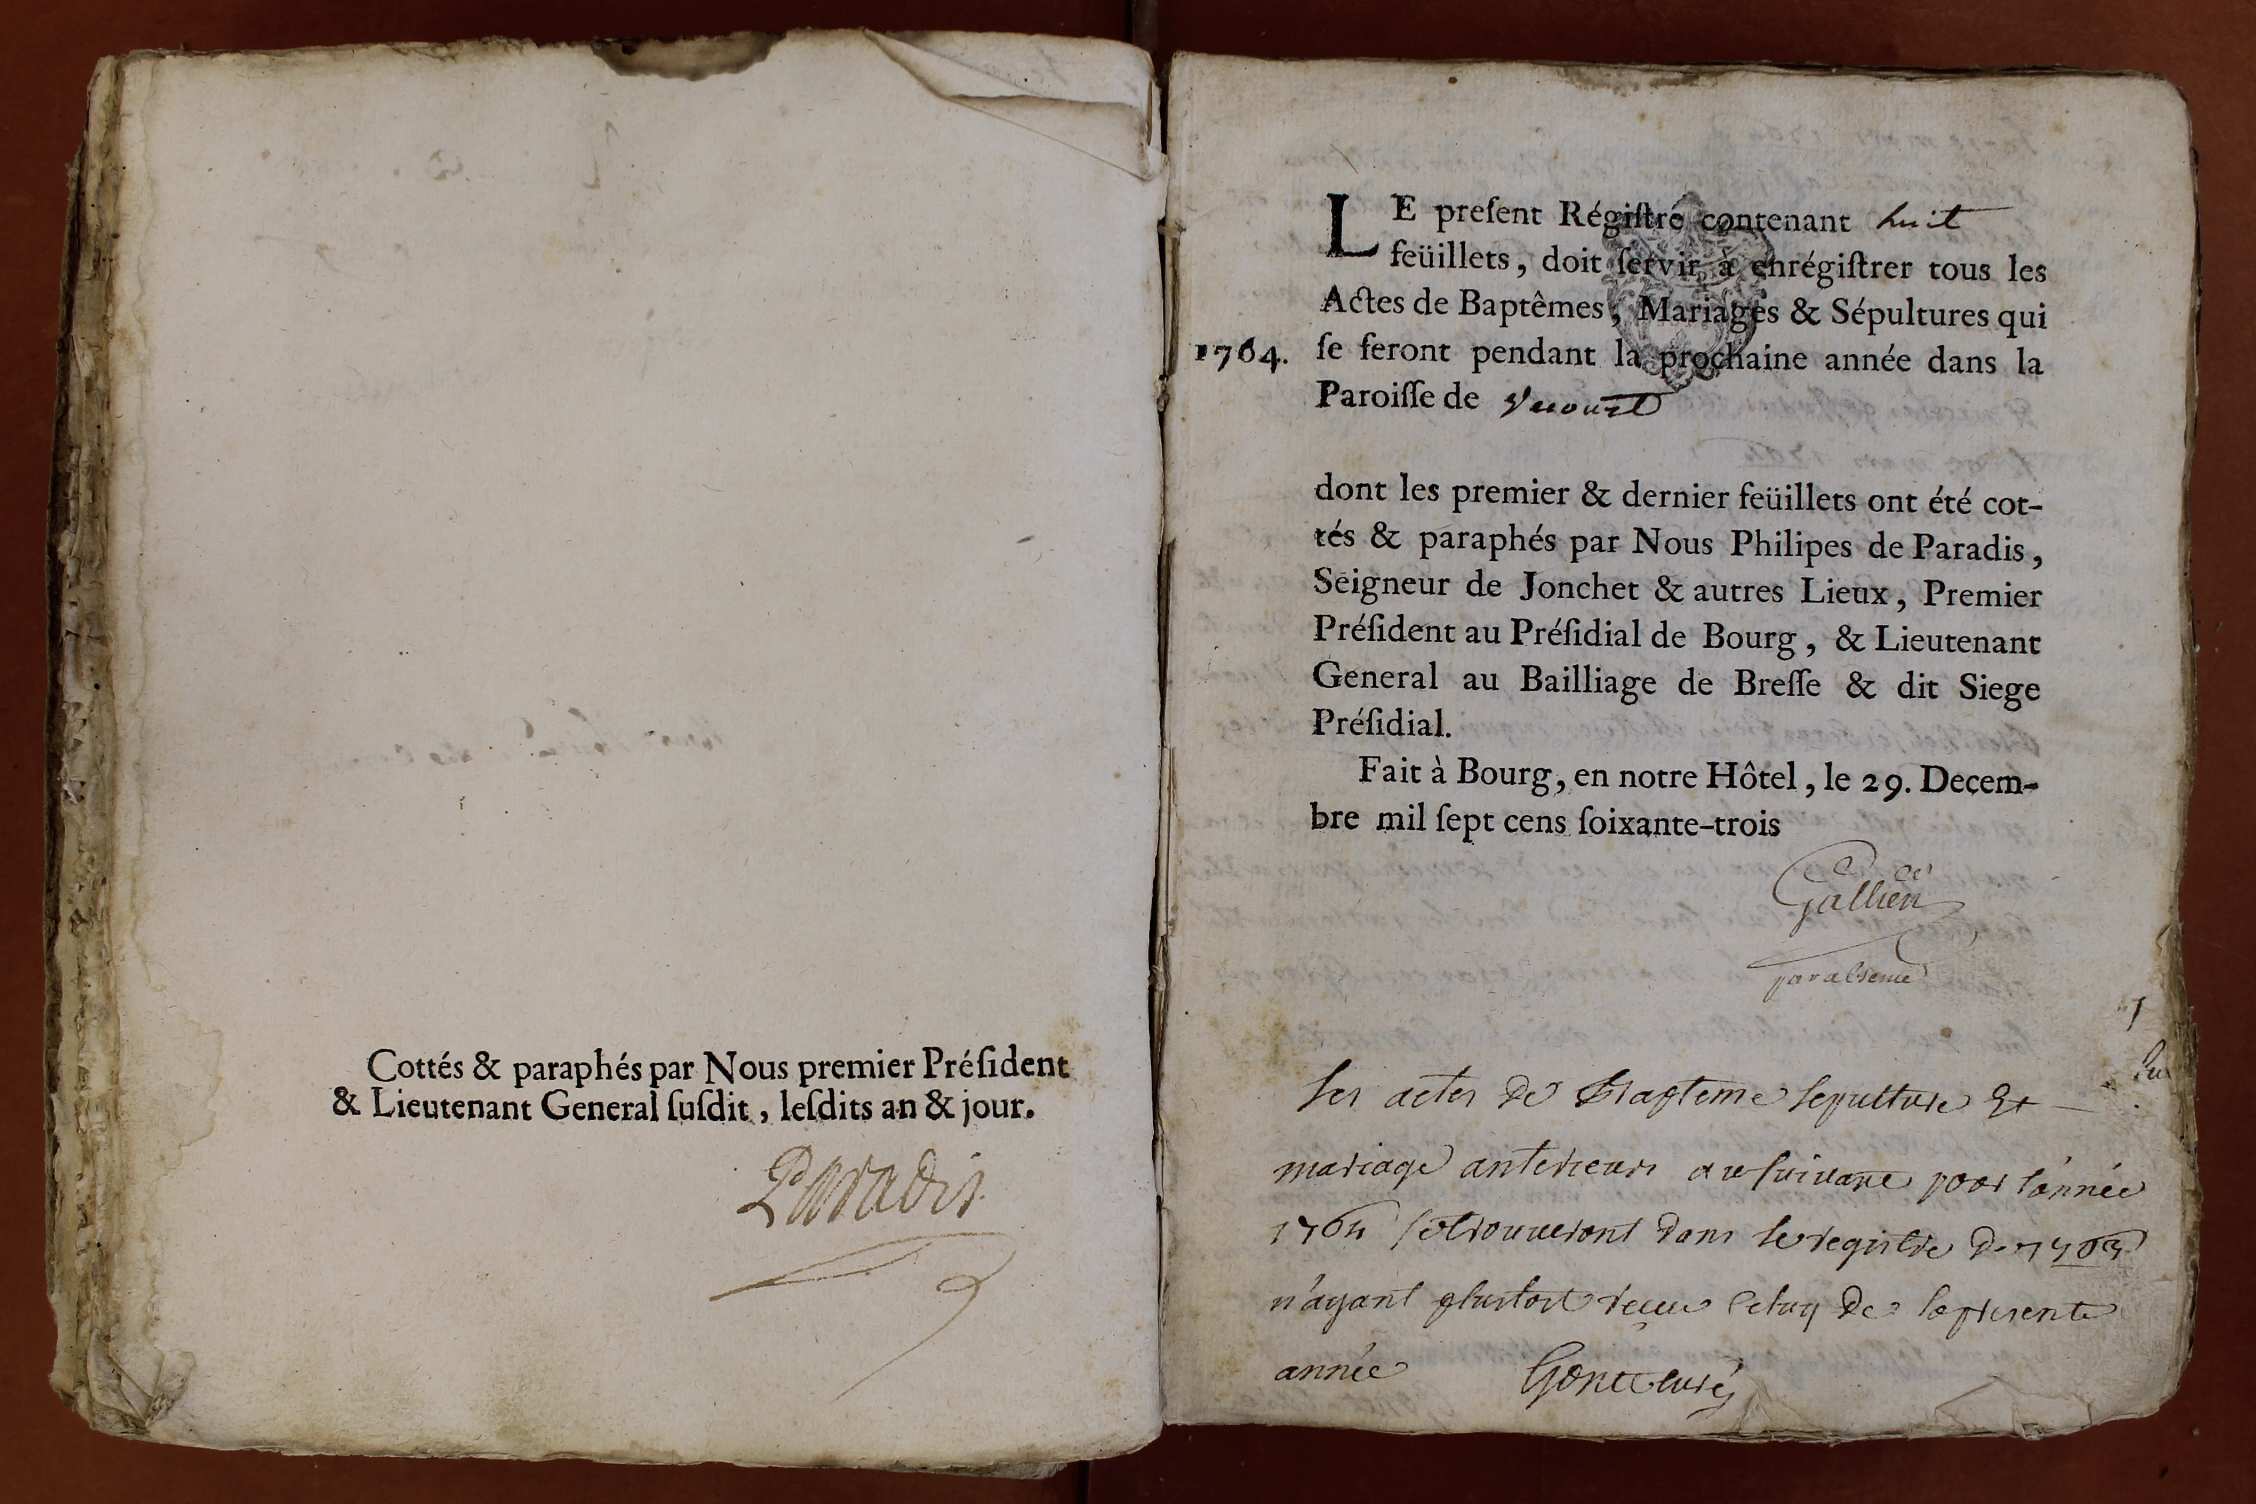 Cottés & paraphés par Nous premier Préſident
& Lieutenant General ſuſdit, leſdits an & jour.
Paradis
LE preſent Régiſtre contenant huit
feüillets, doit ſervir à enrégiſtrer tous les
Actes de Baptêmes, Mariages & Sépultures qui
1764. ſe feront pendant la prochaine année dans la
Paroiſſe de
dont les premier & dernier feüillets ont été cot-
tés & paraphés par Nous Philipes de Paradis,
Seigneur de Jonchet & autres Lieux, Premier
Préſident au Préſidial de Bourg, & Lieutenant
General au Bailliage de Breſſe & dit Siege
Préſidial.
Fait à Bourg, en notre Hôtel, le 29. Decem-
bre mil ſept cens ſoixante-trois
Gallien
par absence
les actes de Bapteme sepulture Et
mariage anterieurs au suivant pour l'année
1764 se trouveront dans le registre de 1763
n'ayant plustost receu celuy de la presente
année Gonet curé